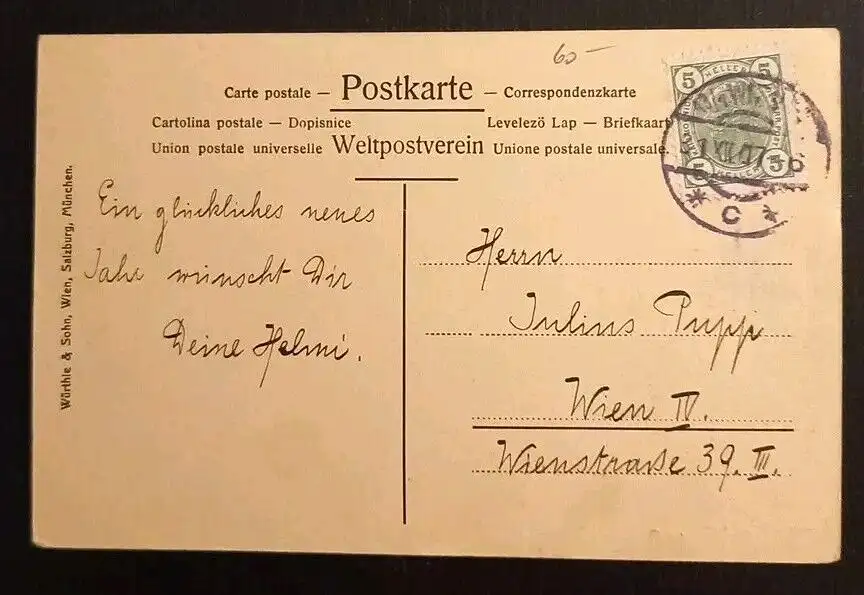 60 —
Carte postale — Postkarte — Correspondenzkarte
Cartolina postale — Dopisnice Levelező Lap — Briefkaart
Union postale universelle Weltpostverein Unione postale universale.
5 HELLER 5
XII. 07
5
* C *
Ein glückliches neues
Jahr wünscht Dir
Deine Helmi.
Herrn
Julius Pupp
Wien IV.
Wienstrasse 39. III.
Würthle & Sohn, Wien, Salzburg, München.